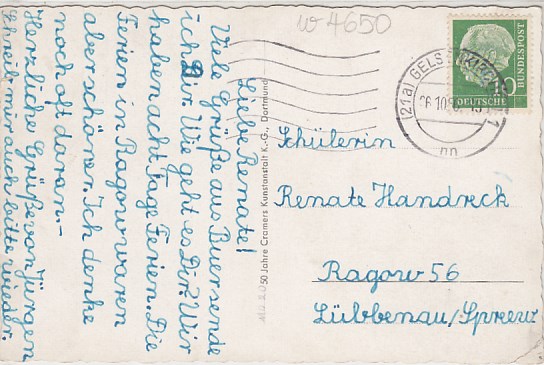 w 4650
Liebe Renate!
Viele Grüße aus Buer sende
ich Dir. Wie geht es Dir? Wir
haben acht Tage Ferien. Die
Ferien in Ragow waren
aber schöner. Ich denke
noch oft daran.-
Herzliche Grüße von Jürgen
Schreib mir auch bitte wieder.
50 Jahre Cramers Kunstanstalt K.-G., Dortmund
DEUTSCHE BUNDESPOST
10
(21a) GELSENKIRCHEN
26.10.
nn
Schülerin
Renate Handreck
Ragow 56
Lübbenau/Spreew